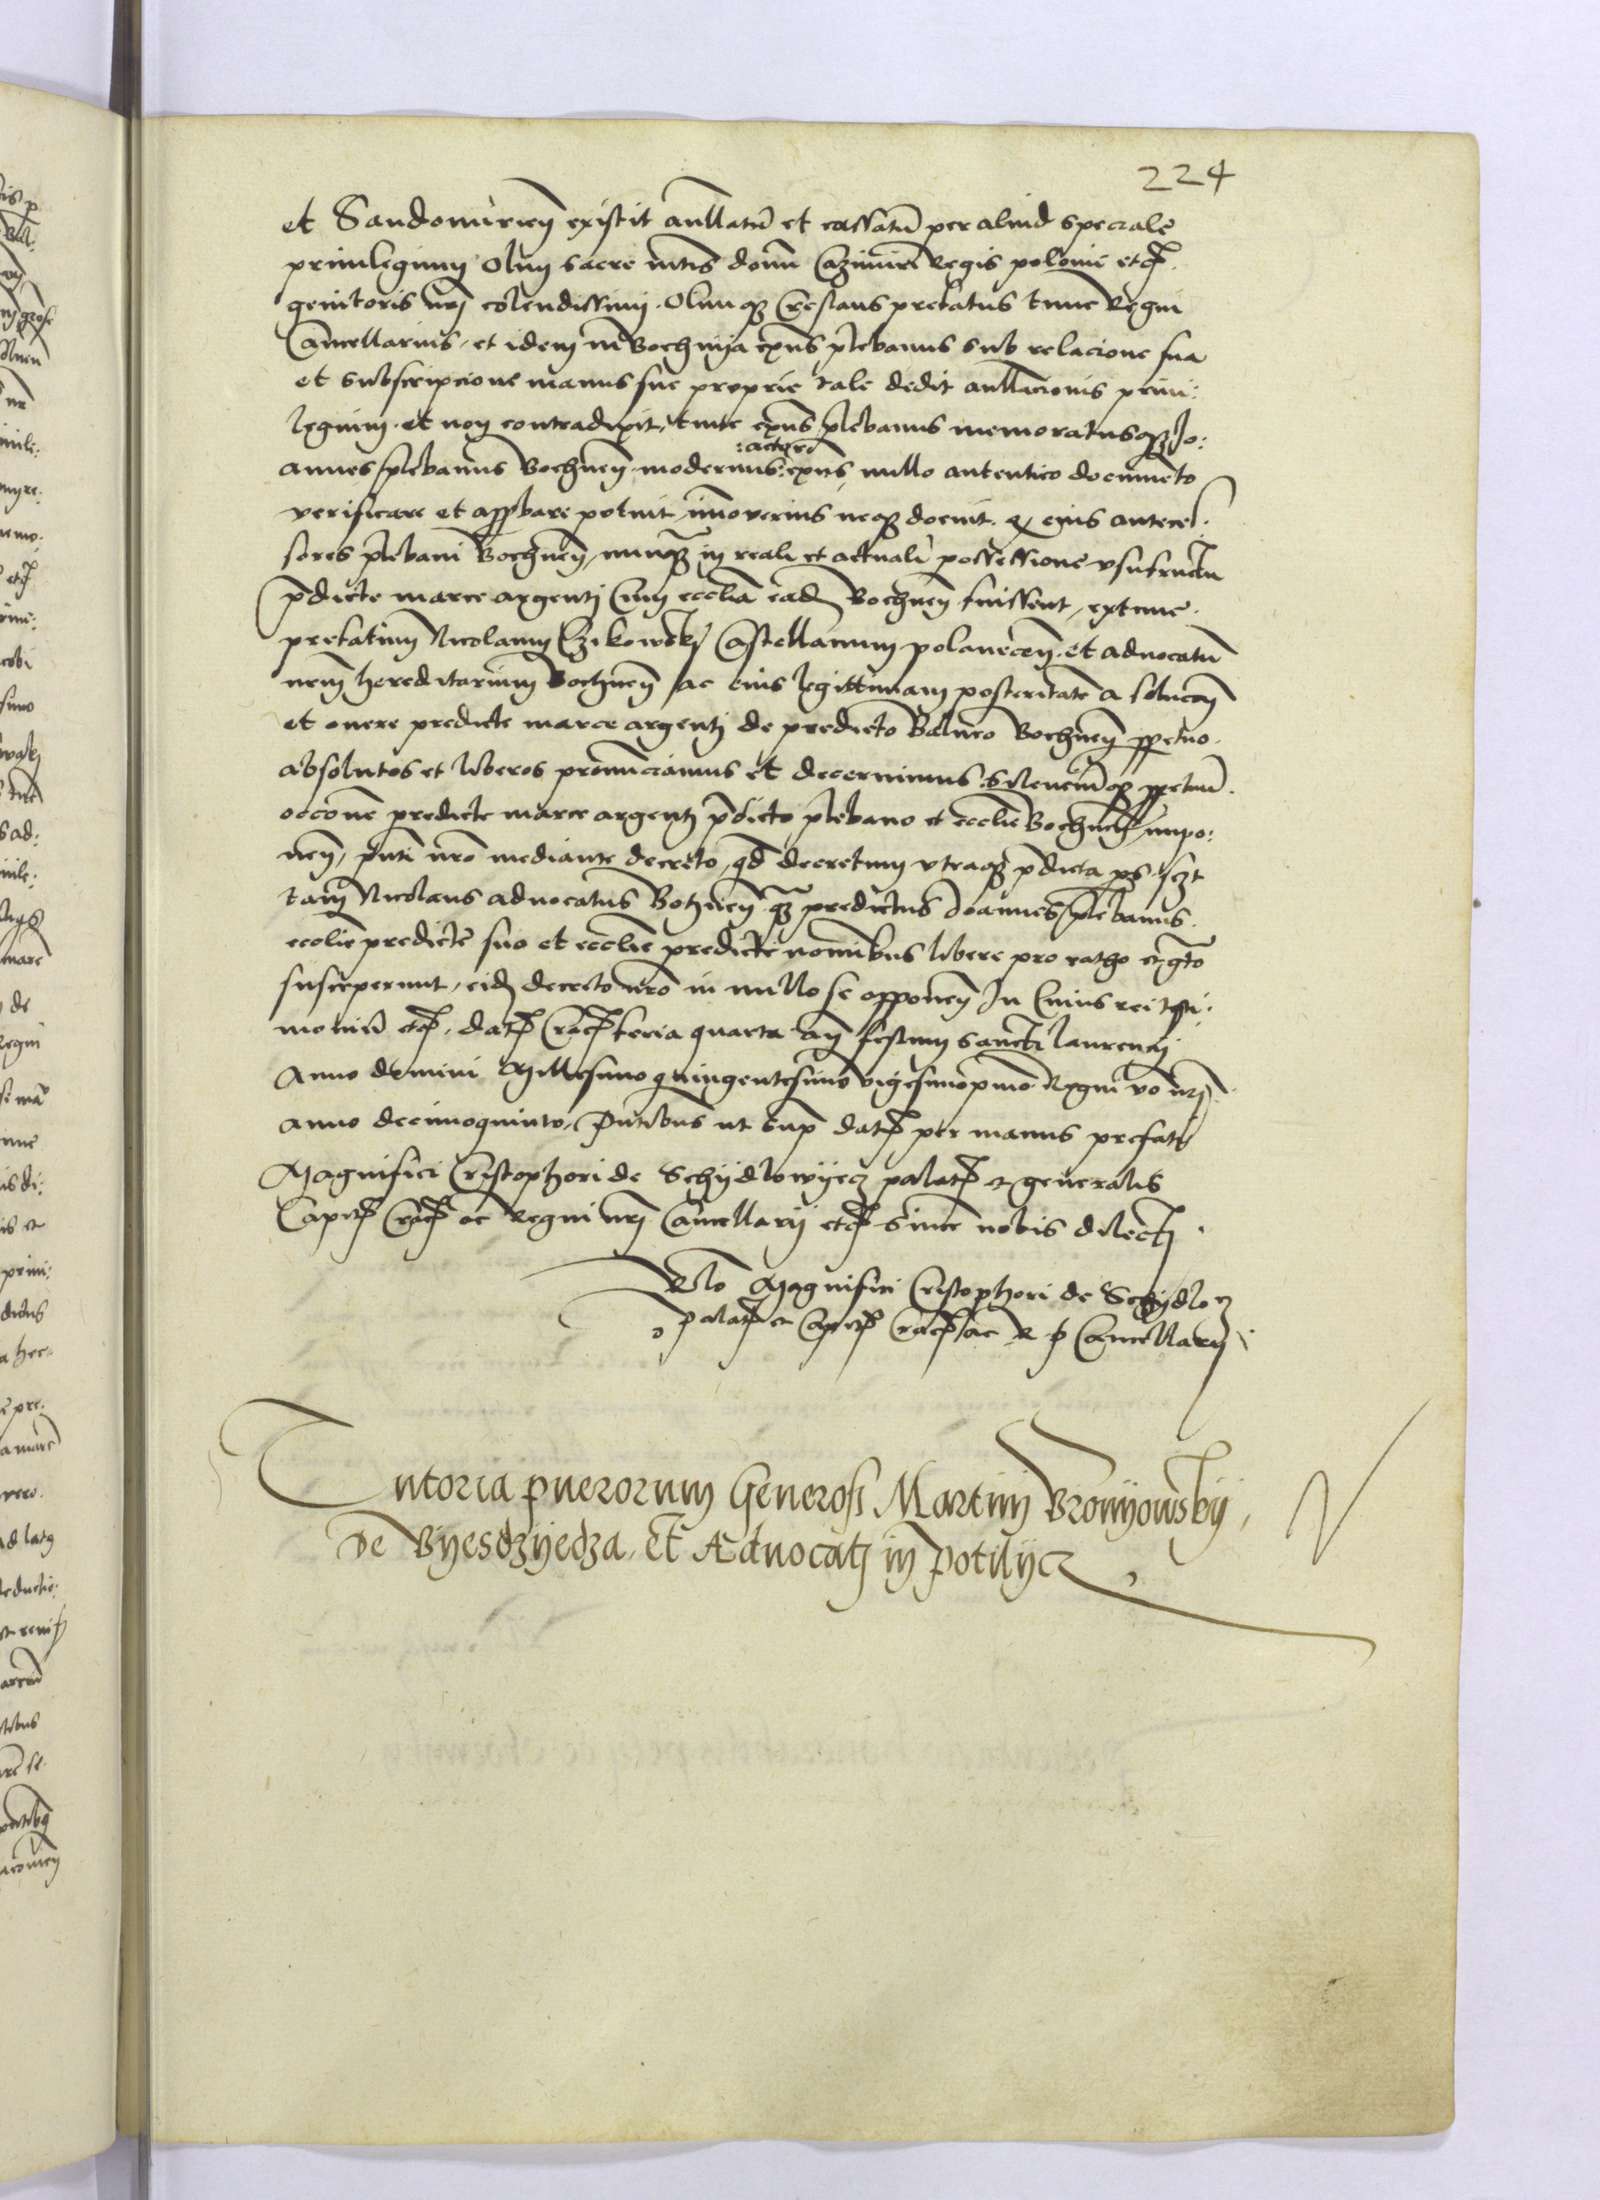 224
et Sandomirieñ existit anullatũ et cassatũ per aliud speciale
privilegium Olim sacre mtis domĩ Cazimiri Regis polonie etc
genitoris nrĩ colendissimi. Olimq Creslaus prefatus tunc Regni
Cancellarius, et idem in Bochnija exns plebanus sub relacione sua
et subscripcione manus sue proprie tale dedit anullacionis privi:
legium. et non contradixit, tunc exns plebanus memoratusq Jo:
:actor
annes plebanus Bochneñ modernus: exns, nullo autentico documẽto
verificare et approbare potuit immoverius neq docuit. q eius anteces
sores plebani Bochneñ, nunq in reali et actuali possessione usufructu
pdicte marce argenti cum ecclia eadẽ Bochneñ fuissent, extunc
prefatum Nicolaum Czikowskÿ Castellanum polanecen. et advocatũ
nrm hereditarium Bochneñ ac eius legittimam posteritatẽ a soluciõe
et onere predicte marce argenti de predicto Balneo Bochneñ ppetuo
absolutos et liberos pronunciamus et decernimus. Silenciũq ppetuũ
occõne predicte marce argenti pdicto plebano et ecclie Bochneñ impo:
neñ, pnti nrõ mediante decreto, qd decretum utraq pdicta ps scz
tam Nicolaus advocatus Bochneñ q predictus Joannes plebanus
ecclie predicte suo et ecclie predicte nomibus libere pro ratho et gto
susceperunt, eidẽ decreto nrõ in nullo se opponeñ In Cuius rei testi:
moniũ etc, dat Crac feria quarta añ festum sancti laurencij
Anno domini Millesimo quingentesimo vigesimoprimo Regni vo nrĩ
anno decimoquinto, Pntibus ut sup dat per manus prefati
Magnifici Cristophori de Schijdlowijecz palat et generalis
Capit Crac ac Regni nrĩ Cancellarij etc sincere nobis dilecti.
Rlo Magnifici Cristophori de Schijdlo
palat et Capit Crac ac R p Cancellarij
Tutoria puerorum Generosi Martini Bronijowskij,
De Byesdzyedza. et Advocati in potilijcz